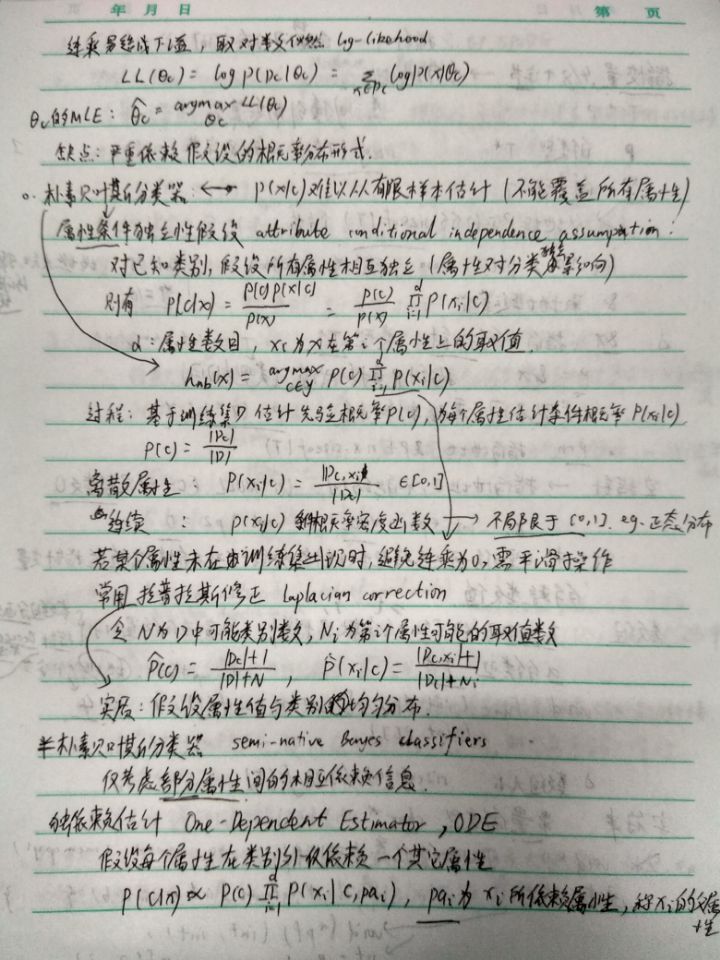 年 月 日 第 页
连乘易造成下溢, 取对数似然 log-likelihood
LL(θc) = log P(Dc|θc) = Σ x∈Dc log P(x|θc)
θc的MLE: θ̂c = argmax θc LL(θc)
缺点: 严重依赖假设的概率分布形式.
朴素贝叶斯分类器 ←→ P(x|c)难以从有限样本估计 (不能覆盖所有属性)
属性条件独立性假设 attribute conditional independence assumption:
对已知类别, 假设所有属性相互独立 (属性对分类独立影响)
则有 P(c|x) = P(c)P(x|c) / P(x) = P(c) / P(x) ∏ i=1 d P(xi|c)
d: 属性数目, xi为x在第i个属性上的取值.
hnb(x) = argmax c∈y P(c) ∏ i=1 d P(xi|c)
过程: 基于训练集D估计先验概率P(c), 为每个属性估计条件概率P(xi|c)
P(c) = |Dc| / |D|
离散属性: P(xi|c) = |Dc,xi| / |Dc| ∈[0,1]
连续 : p(xi|c) 概率密度函数 → 不局限于[0,1]. eg.正态分布
若某个属性未在训练集出现时, 避免连乘为0, 需平滑操作
常用拉普拉斯修正 Laplacian correction
令N为D中可能类别数, Ni为第i个属性可能的取值数
P̂(c) = |Dc|+1 / |D|+N , P̂(xi|c) = |Dc,xi|+1 / |Dc|+Ni
实质: 假设属性值与类别均匀分布.
半朴素贝叶斯分类器 semi-native Bayes classifiers
仅考虑部分属性间的相互依赖信息.
独依赖估计 One-Dependent Estimator, ODE
假设每个属性在类别外仅依赖一个其它属性
P(c|x) ∝ P(c) ∏ i=1 d P(xi|c,pai), pai为xi所依赖属性, 称xi的父属性